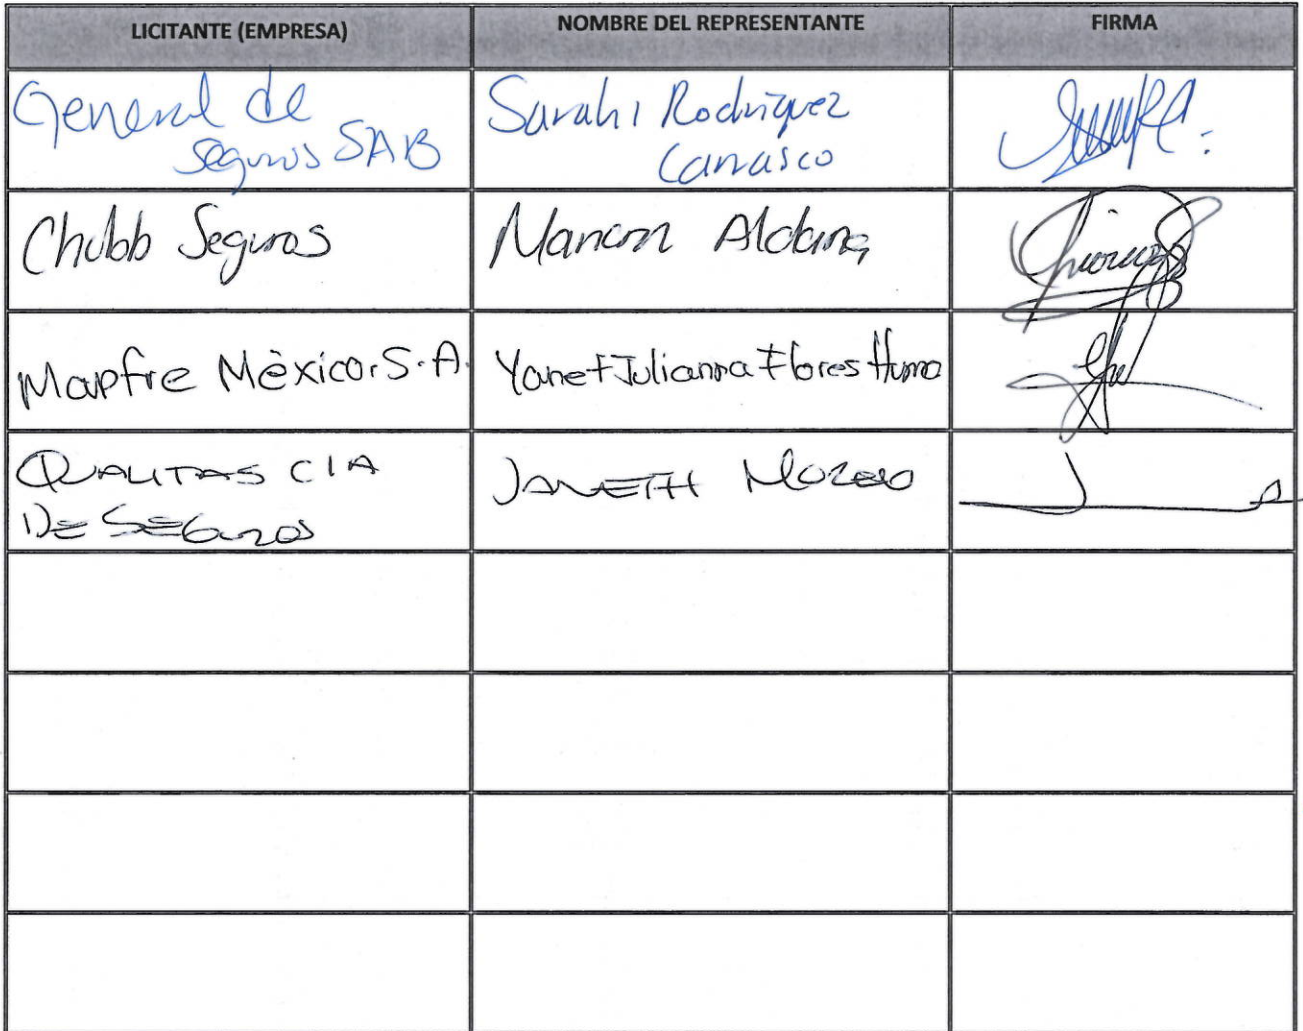 LICITANTE (EMPRESA)
NOMBRE DEL REPRESENTANTE
FIRMA
General de
Seguros SAB
Sarahi Rodriguez
Carrasco
Chubb Seguros
Aldana
Mapfre México.S.A.
Yanet Julianna Flores
QUALITAS CIA
DE SEGUROS
JANETH MORENO